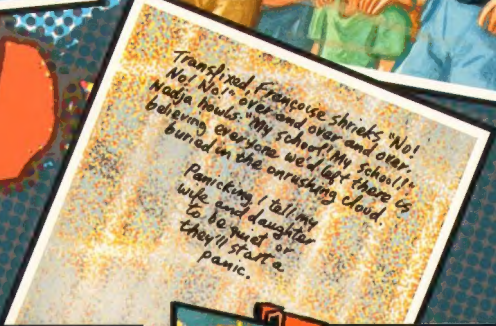 Transfixed, Françoise shrieks "No!
No! No!" over and over and over.
Nadja howls. "My school! My school!"
believing everyone we'd left there is
buried in the onrushing cloud.
Panicking, I tell my
wife and daughter
to be quiet or
they'll start a
panic.